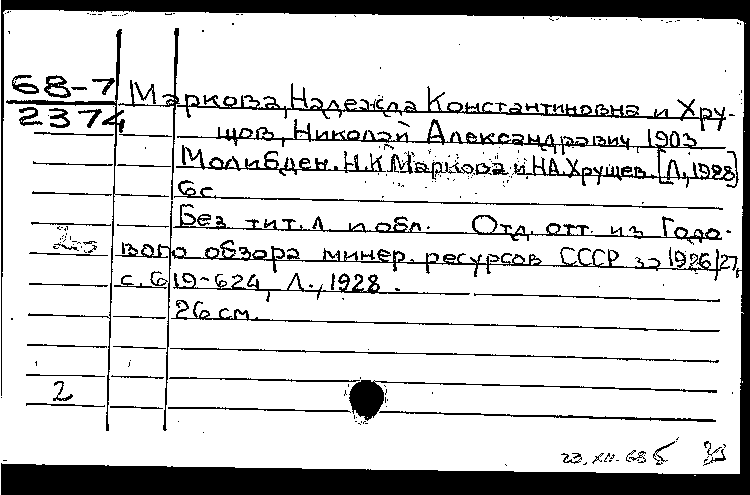 68-7
2374
Маркова, Надежда Константиновна и Хру-
щов, Николай Александрович, 1903
Молибден. Н.К Маркова и Н.А. Хрущев. [Л., 1928]
6 с.
Без тит. л. и обл. Отд. отт. из Годо-
вого обзора минер. ресурсов СССР за 1926/27,
с. 619-624, Л., 1928.
26 см.
2
23.XII.68